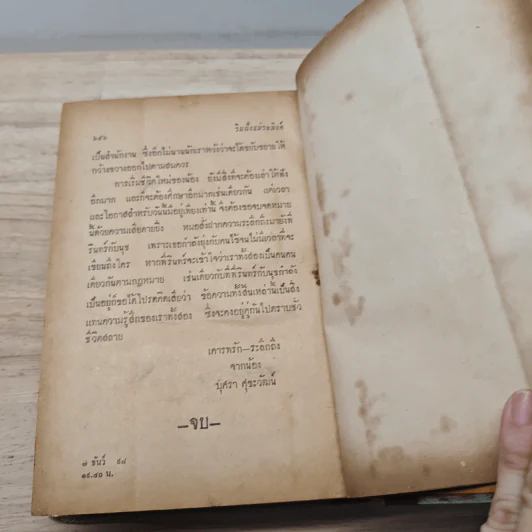 ๖๔๖ ริมฝั่งแม่ระมิงค์
เป็นสำนักงาน ซึ่งอีกไม่นานนักเราหวังว่าจะได้ขยับขยายให้
กว้างขวางออกไปตามสมควร
การเริ่มชีวิตใหม่ของน้อง ยังมีสิ่งที่จะต้องเล่าให้ฟัง
อีกมาก และก็จะต้องศึกษาอีกมากเช่นเดียวกัน แต่เวลา
และโอกาสสำหรับวันนี้มีอยู่เพียงเท่านี้ จึงต้องขอจบจดหมาย
นี้ด้วยความเสียดายยิ่ง หมอสั่งฝากความระลึกถึงมายังพี่
รินทร์กับนุช เพราะเธอกำลังยุ่งกับคนไข้จนไม่มีเวลาที่จะ
เขียนถึงใคร หากพี่รินทร์จะเข้าใจว่าเราทั้งสองเป็นคนคน
เดียวกันตามกฎหมาย เช่นเดียวกับที่พี่รินทร์กับนุชกำลัง
เป็นอยู่ก็ขอได้โปรดคิดเสียว่า ข้อความทั้งสิ้นเหล่านี้เป็นสิ่ง
แทนความรู้สึกของเราทั้งสอง ซึ่งจะคงอยู่คู่กันไปตราบชั่ว
ชีวิตสลาย
เคารพรัก—ระลึกถึง
จากน้อง
บุศรา ศุขะวัฒน์
—จบ—
๗ ธันว์ ๙๘
๑๙.๔๐ น.